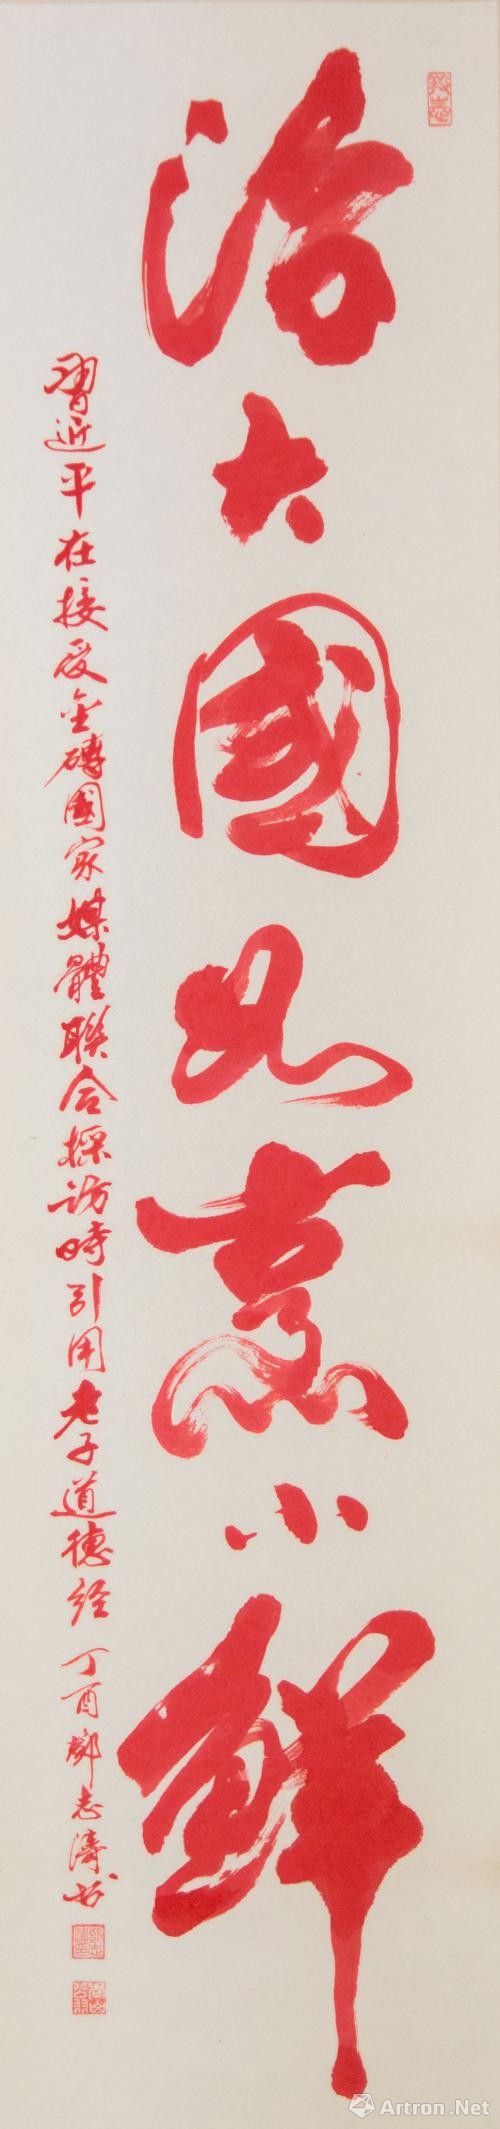 治大國如烹小鮮
習近平在接受金磚國家媒體聯合採訪時引用老子道德经 丁酉 志濤书
Artron.Net